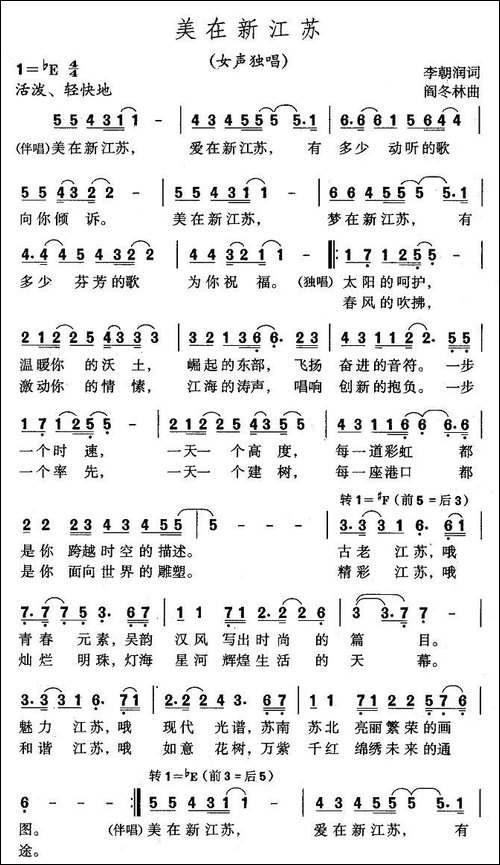 美在新江苏
(女声独唱)
1=♭E 4/4
李朝润词
活泼、轻快地
阎冬林曲
5 5 4 3 1 1 - | 4 3 4 5 5 5 5. 1 | 6. 6 6 1 5 6 4 4 |
(伴唱)美在新江苏, 爱在新江苏, 有 多少 动听的歌
5 5 4 3 2 2 - | 5 5 4 3 1 1 - | 6 6 4 5 5 5 5. 1 |
向你倾 诉。 美在新江苏, 梦在新江苏, 有
4. 4 4 5 4 3 2 2 | 4 3 2 1 1 - |: 1 7 1 2 5 5 - |
多少 芬芳的歌 为你祝 福。 (独唱) 太阳的呵护,
春风的吹拂,
2 1 2 2 5 4 3 3 | 3 2 1 3 6 6. 2 3 | 4 3 1 1 2 2. 5 5 |
温暖你 的沃 土, 崛起的东部, 飞扬 奋进的音符。 一步
激动你 的情 愫, 江海的涛声, 唱响 创新的抱负。 一步
1 7 1 2 5 5 - | 2 1 2 2 5 4 3 - | 4 3 1 1 2 6 6. 6 |
一个时 速, 一天一 个高度, 每一道彩虹 都
一个率 先, 一天一 个建树, 每一座港口 都
转1=♯F (前5=后3)
2 2 2 3 4 3 4 5 5 | 5 - - - | 3. 3 3 1 6. 6 1 |
是你 跨越时空的描述。 古老 江苏,哦
是你 面向世界的雕塑。 精彩 江苏,哦
7. 7 7 5 3. 6 7 | 1 1 2. 3 2 2 6 | 3 3. 7 7 - |
青春 元素,吴韵 汉风 写出时尚 的 篇 目。
灿烂 明珠,灯海 星河 辉煌生活 的 天 幕。
3. 3 3 1 6. 7 1 | 2. 2 2 4 3. 6 7 | 1 7 5 6 7 5 3 3 |
魅力 江苏,哦 现代 光谱,苏南 苏北 亮丽繁荣的画
和谐 江苏,哦 如意 花树,万紫 千红 锦绣未来的通
转1=♭E (前3=后5)
6 - - - :| 5 5 4 3 1 1 - | 4 3 4 5 5 5 5. 1 |
图。 (伴唱) 美在新江苏, 爱在新江苏, 有
途。